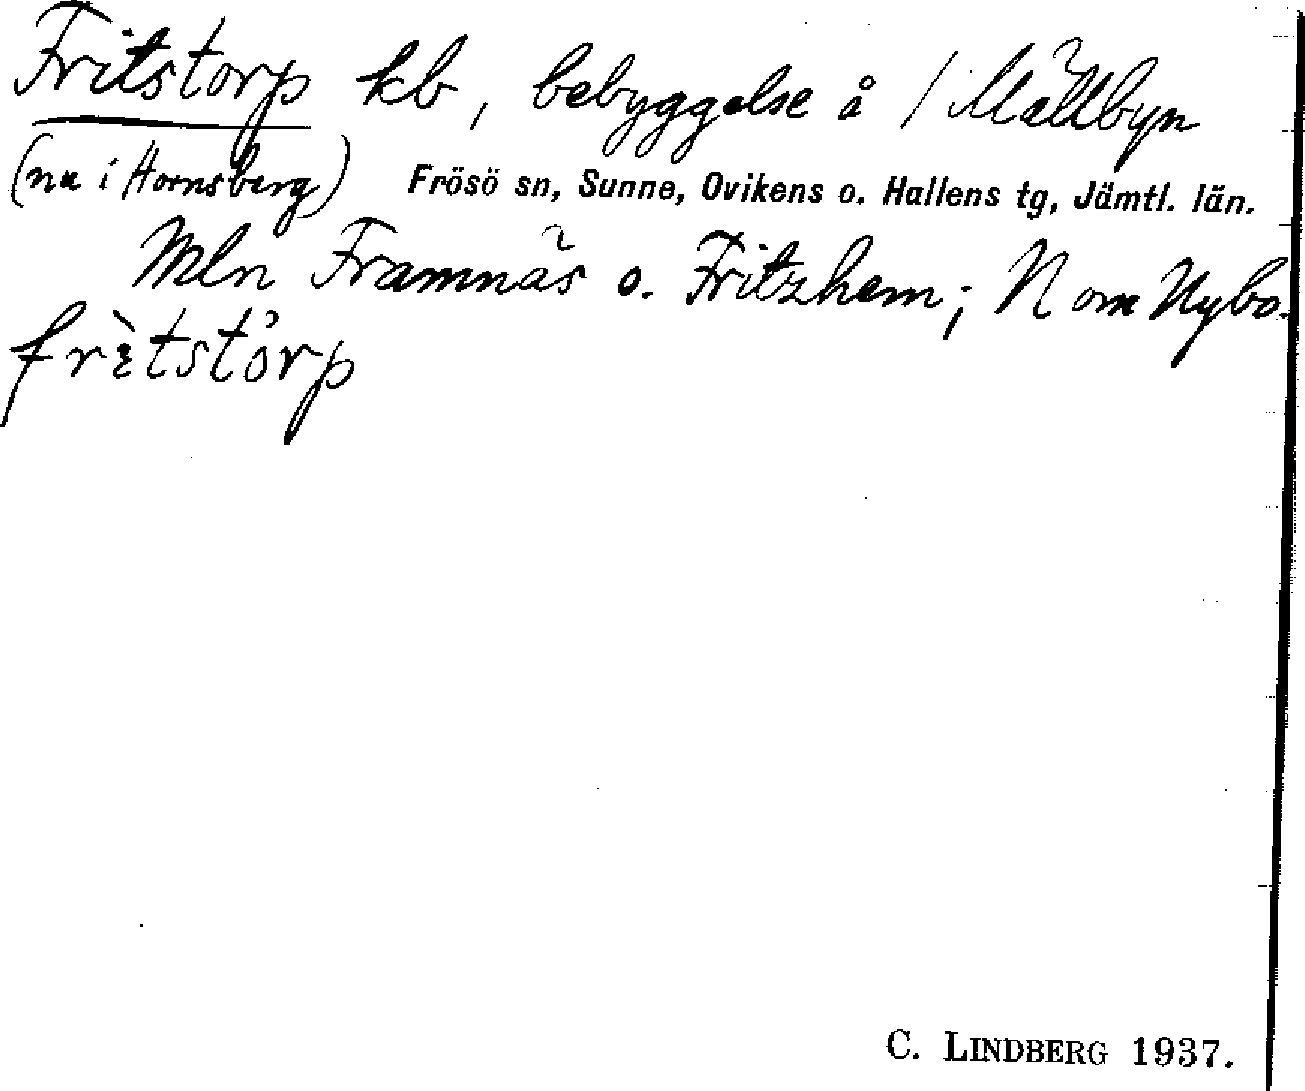 Fritstorp kb, bebyggelse å / Mällbyn
(nu i Hornsberg) Frösö sn, Sunne, Ovikens o. Hallens tg, Jämtl. län.
Mln Framnäs o. Fritzhem; N om Nybo.
frìtstòrp
C. LINDBERG 1937.